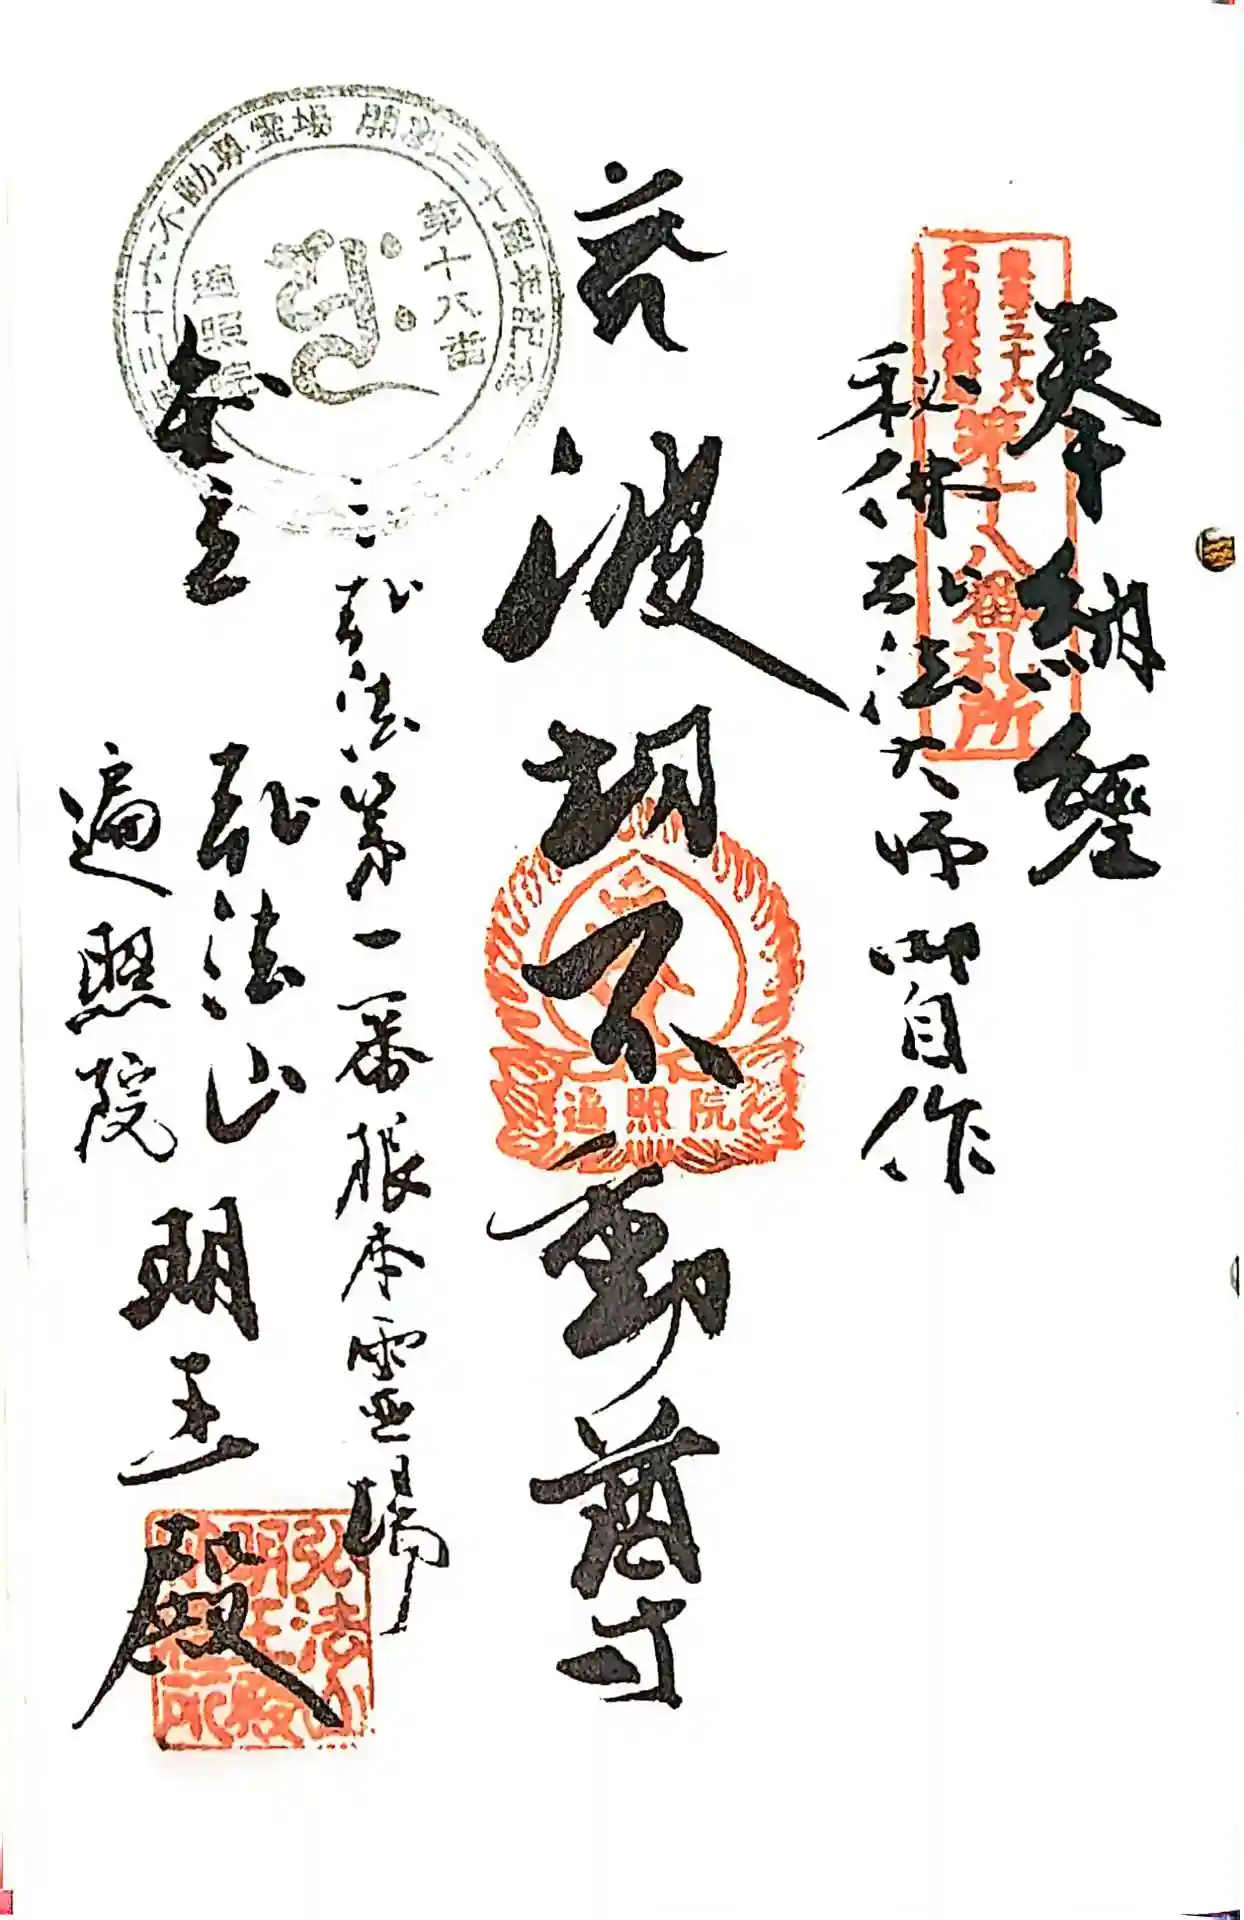 奉納經
秘佛弘法大師御自作
苅波切不動尊
三弘法第一番根本霊場
本立
弘法山
遍照院
明王殿
第十八番札所
三十六不動尊霊場 開創三十周年記念
第十八番
遍照院
遍照院